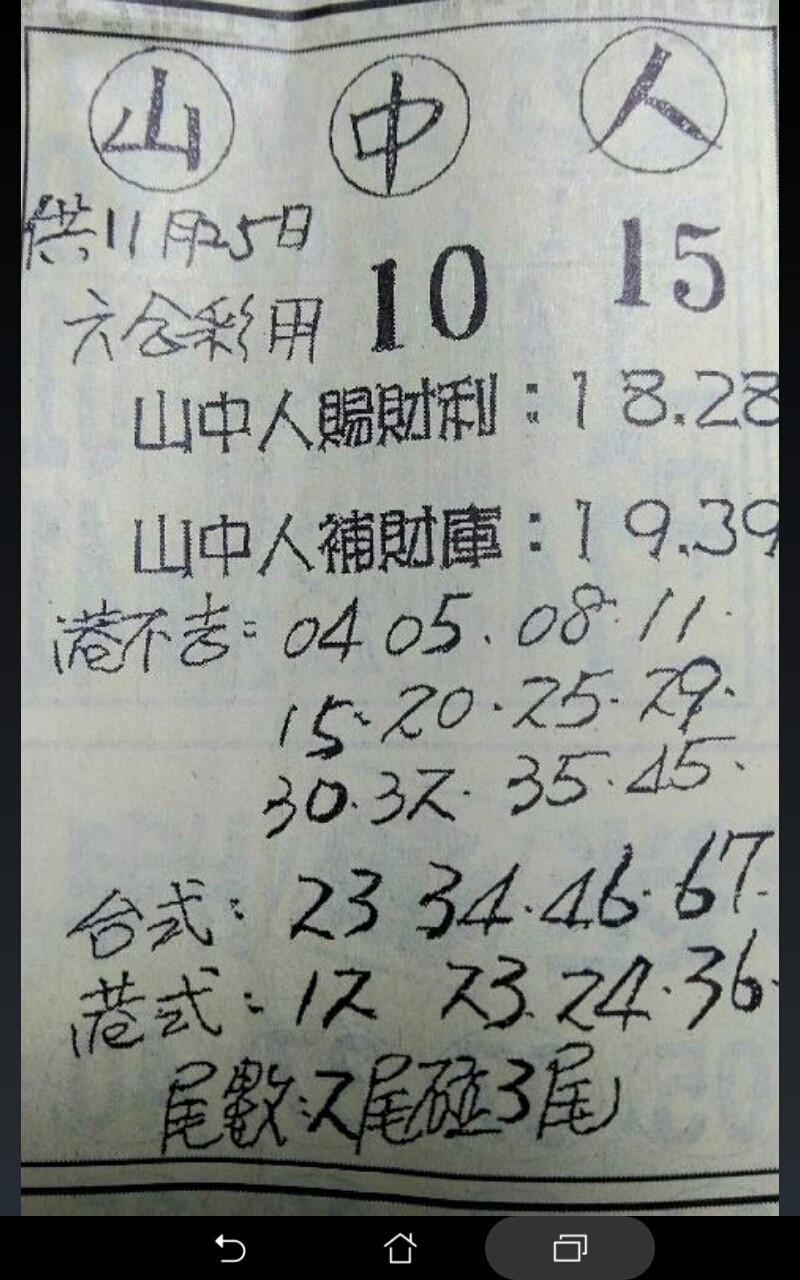 山 中 人
供11月25日
六合彩用 10 15
山中人賜財利：18.28
山中人補財庫：19.39
港不吉：04 05．08·11·
15·20·25·29·
30·32·35·45·
台式：23 34·46·67·
港式：12 23·24·36·
尾數：2尾碰3尾